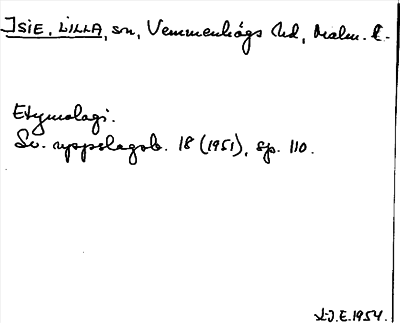 ISIE, LILLA, sn, Vemmenhögs hd, Malm. l.
Etymologi.
Sv. uppslagsb. 18 (1951), sp. 110.
L-J.E. 1954.